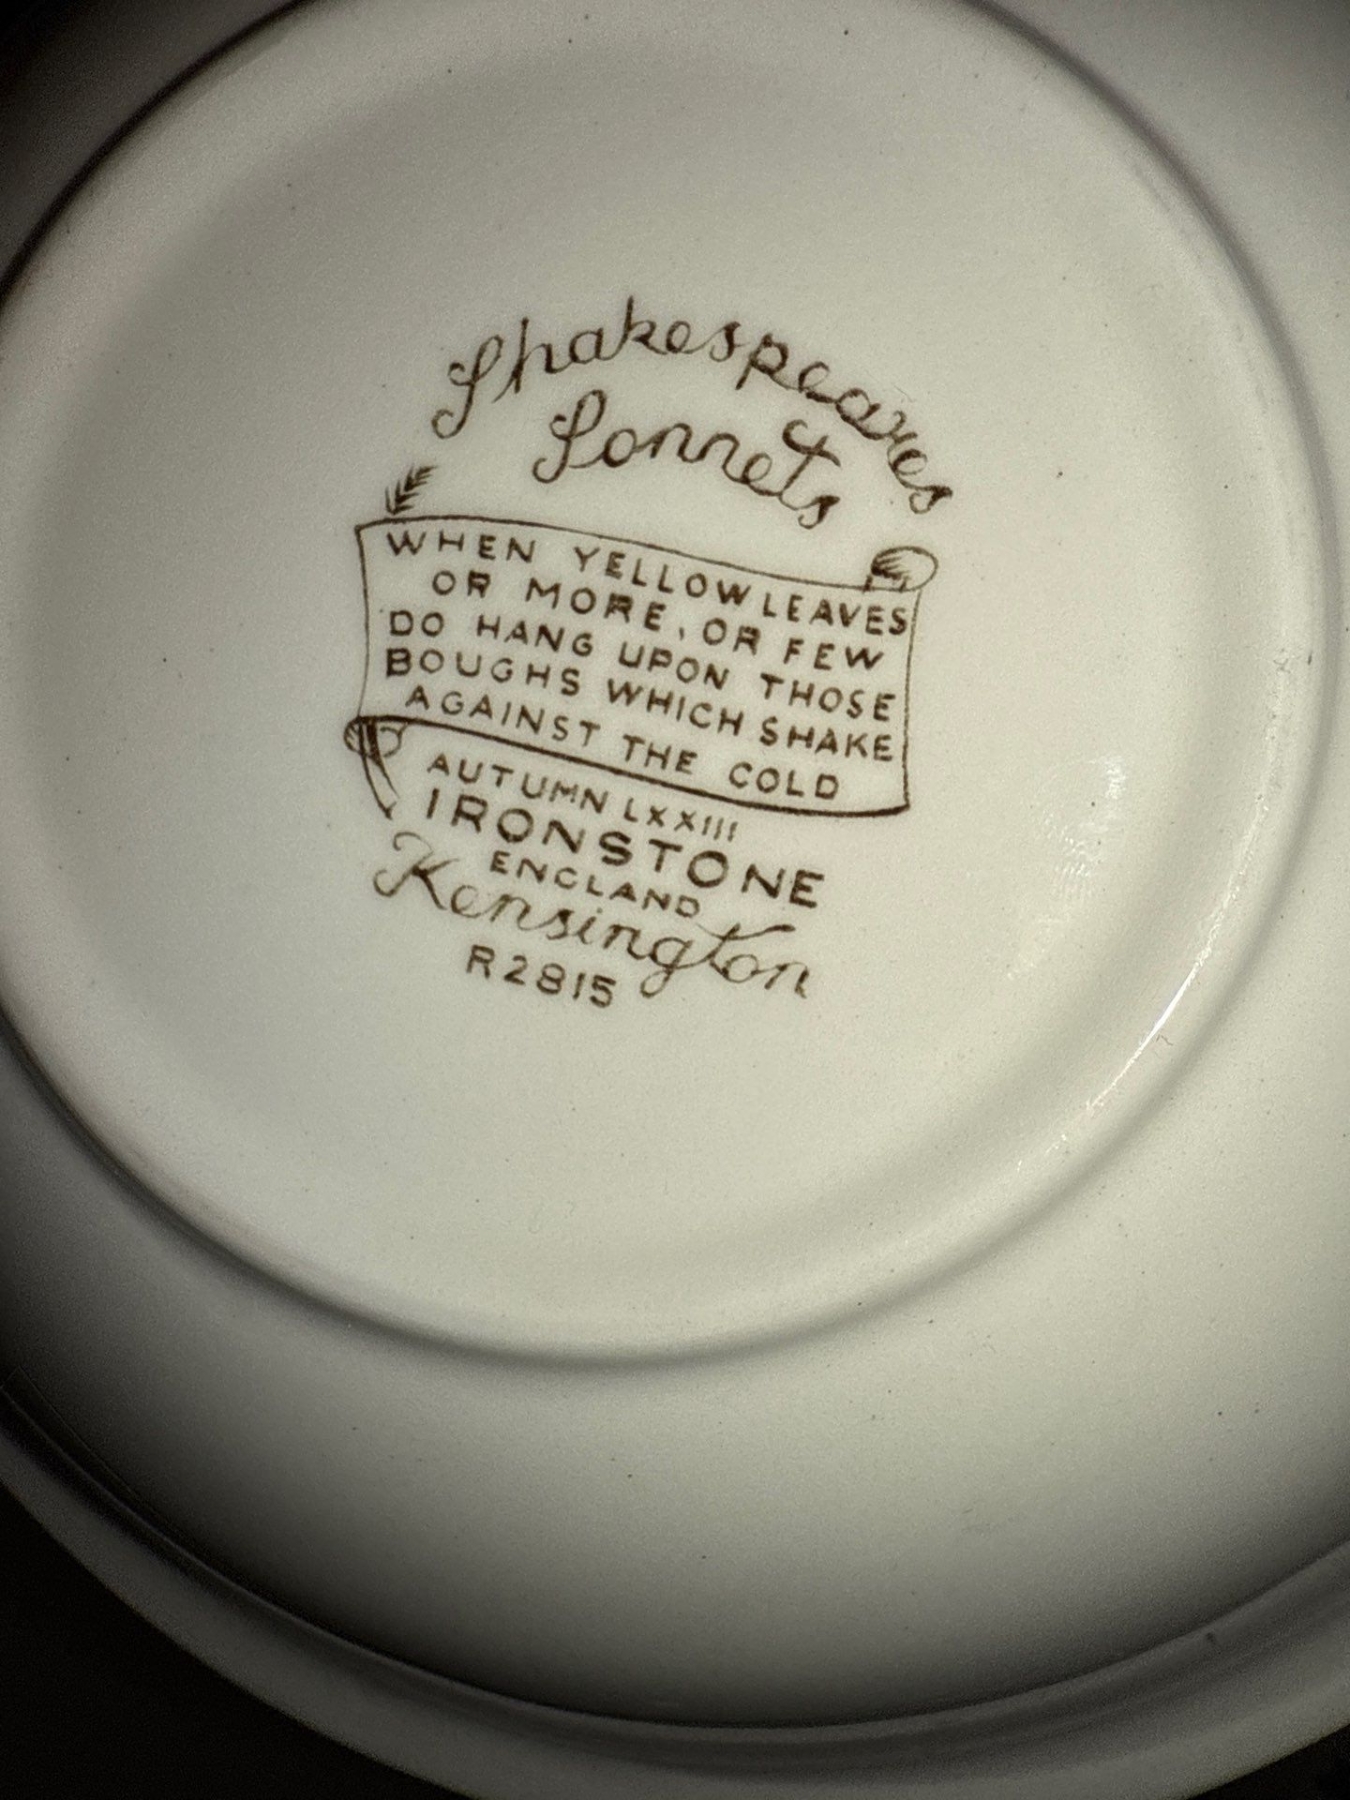 Shakespeares
Sonnets
WHEN YELLOW LEAVES
OR MORE, OR FEW
DO HANG UPON THOSE
BOUGHS WHICH SHAKE
AGAINST THE COLD
AUTUMN LXXIII
IRONSTONE
ENGLAND
Kensington
R2815